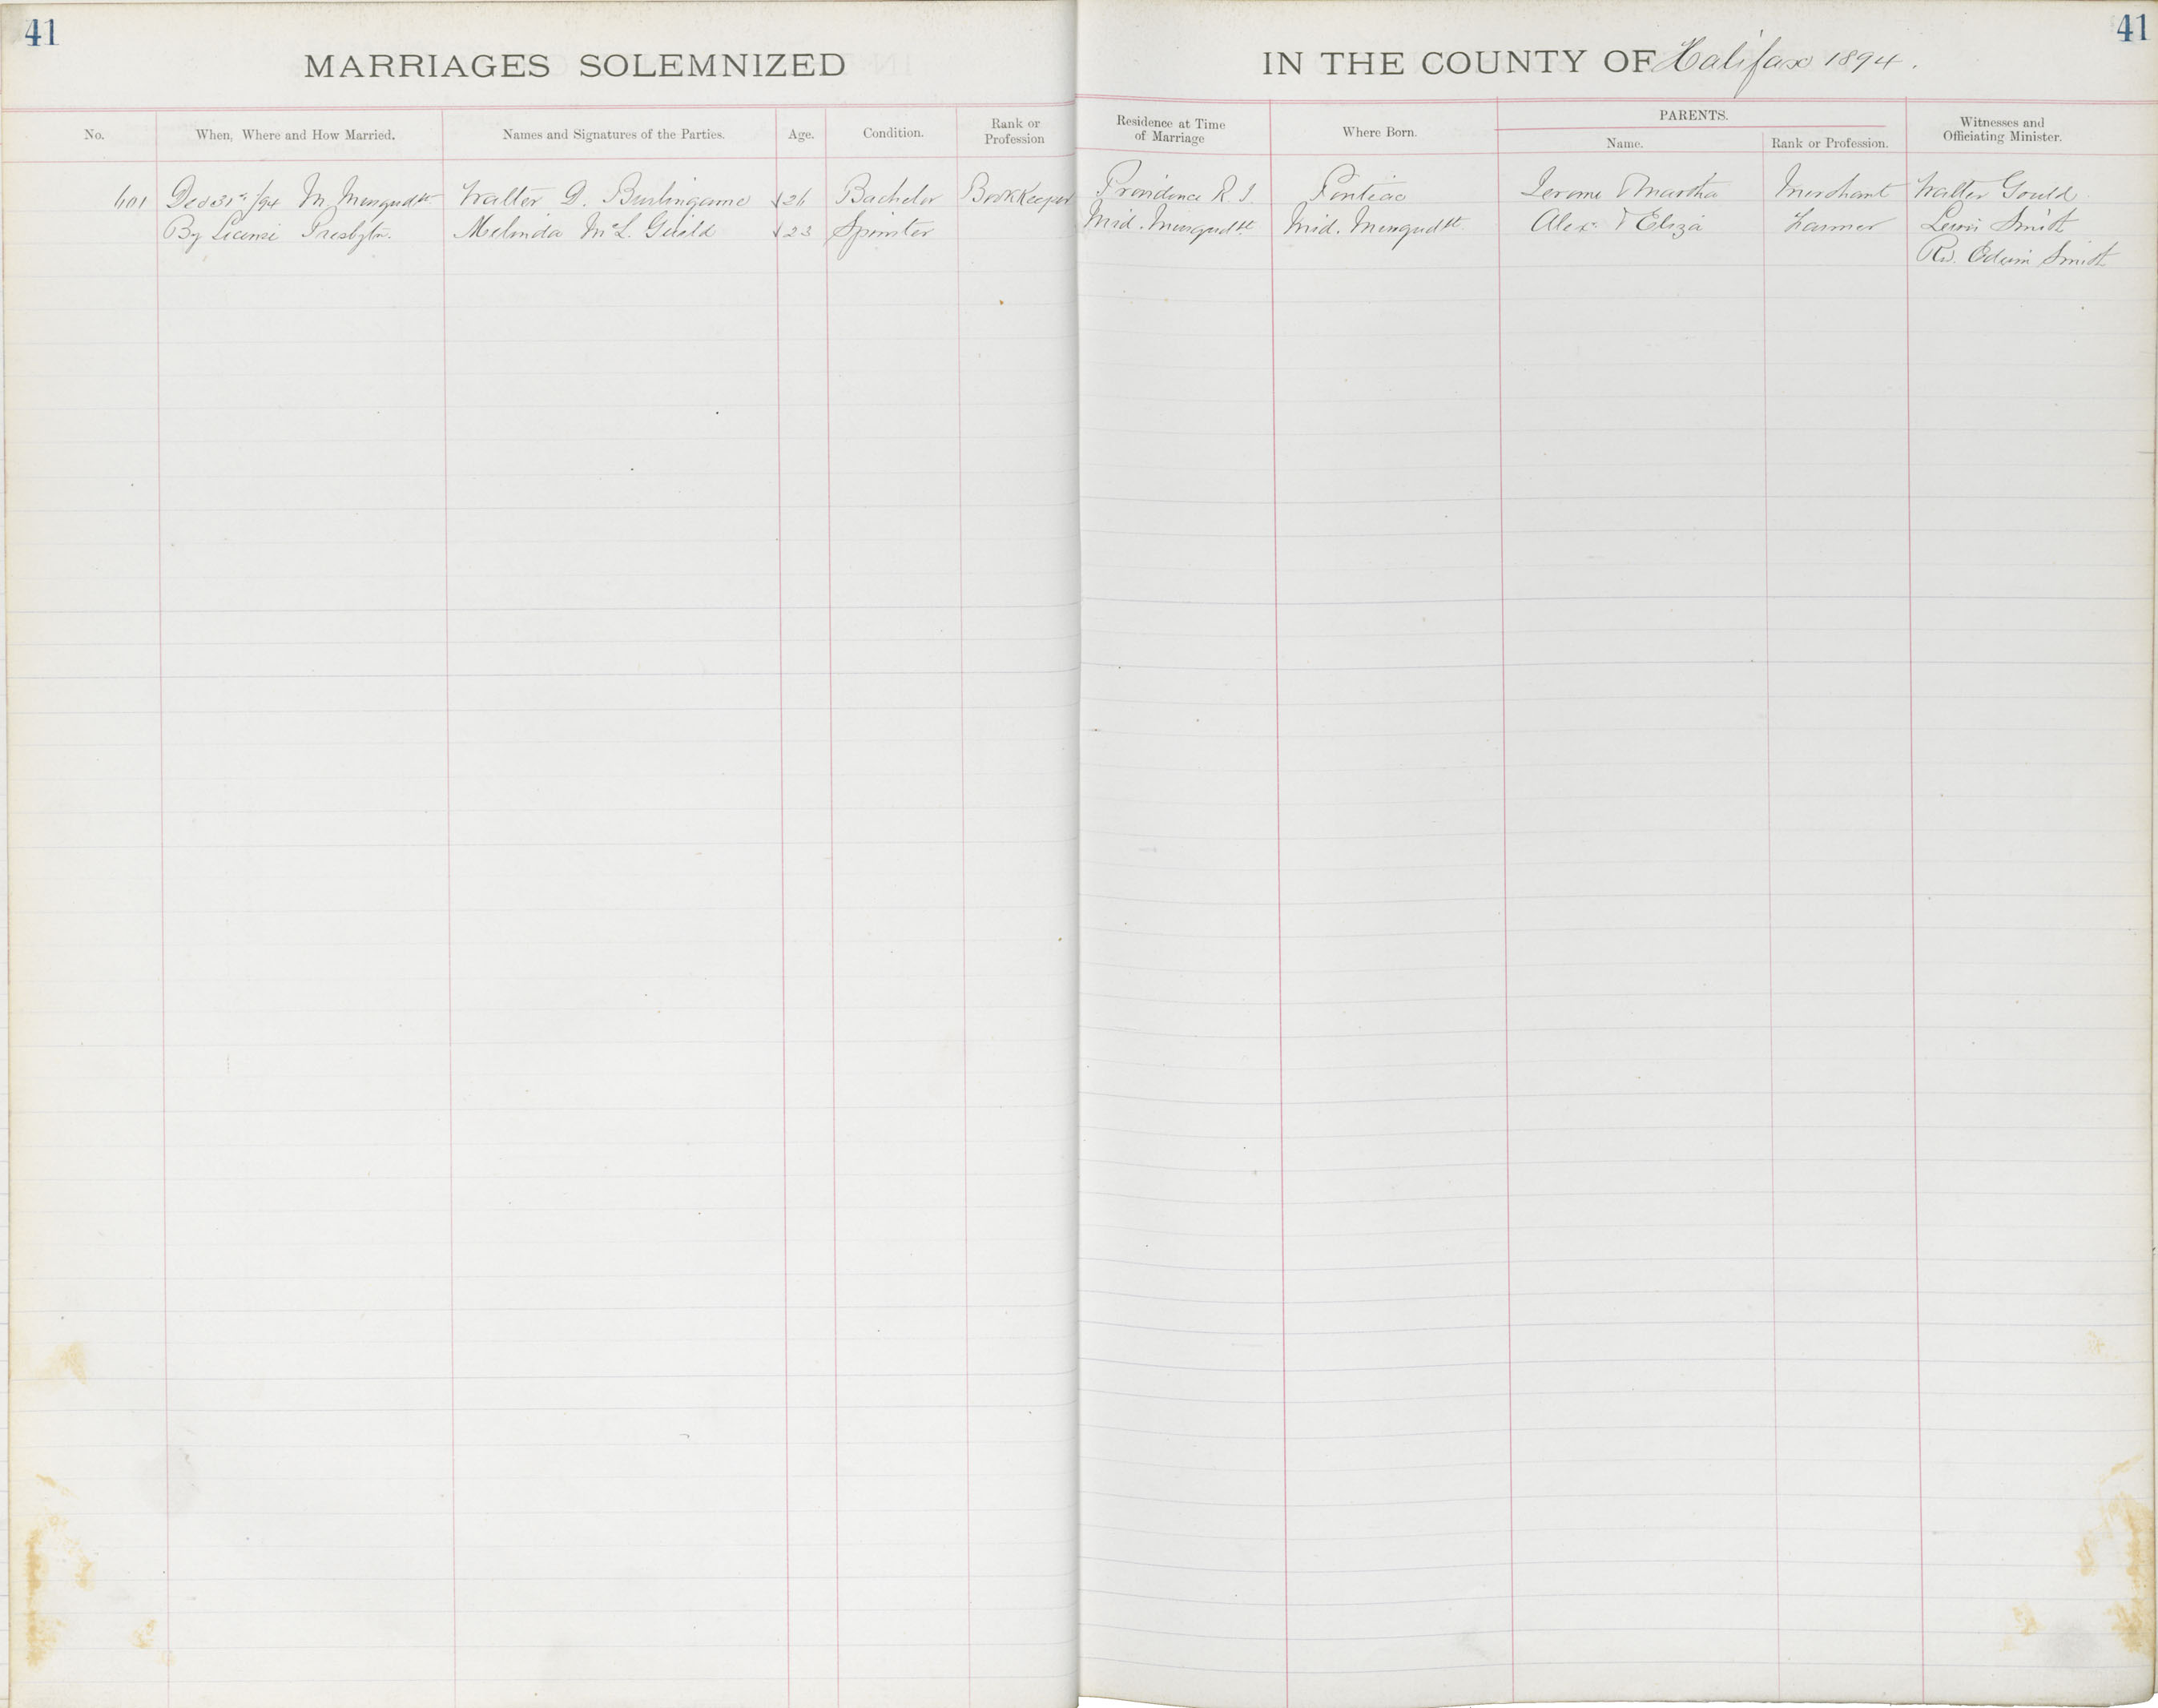 41 41
MARRIAGES SOLEMNIZED IN THE COUNTY OF Halifax 1894.
No. When, Where and How Married. Names and Signatures of the Parties. Age. Condition. Rank or Profession Residence at Time of Marriage Where Born. PARENTS. Name. Rank or Profession. Witnesses and Officiating Minister.
601 Dec 31st/94 M. Musqudtt Walter D. Burlingame 26 Bachelor BookKeeper Providence R. I. Pontiac Jerome & Martha Merchant Walter Gould
By License Presbytn. Melinda McL. Guild 23 Spinster Mid. Musqudtt Mid. Musqudtt Alexr & Eliza Farmer Lewis Smith
Rev. Edwin Smith